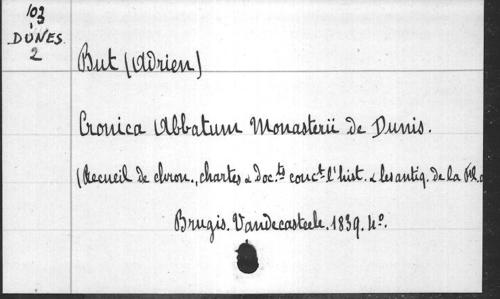 103
DUNES.
2
But (Adrien)
Cronica Abbatum Monasterii de Dunis.
(Recueil de chron., chartes & doc.ts conct l'hist. & les antiq. de la Fl. o
Brugis. Vandecasteele. 1839. 4o.